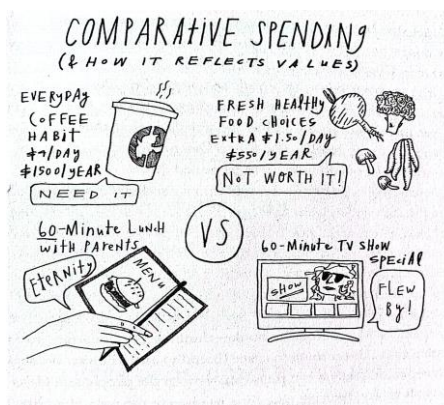 COMPARATIVE SPENDING
(& HOW IT REFLECTS VALUES)
EVERYDAY
COFFEE
HABIT
$4/DAY
$1500/YEAR
NEED IT
FRESH HEALTHY
FOOD CHOICES
EXTRA $1.50/DAY
$550/YEAR
NOT WORTH IT!
VS
60-Minute Lunch
with Parents
Eternity
MENU
60-Minute TV Show
Special
SHOW
FLEW
BY!